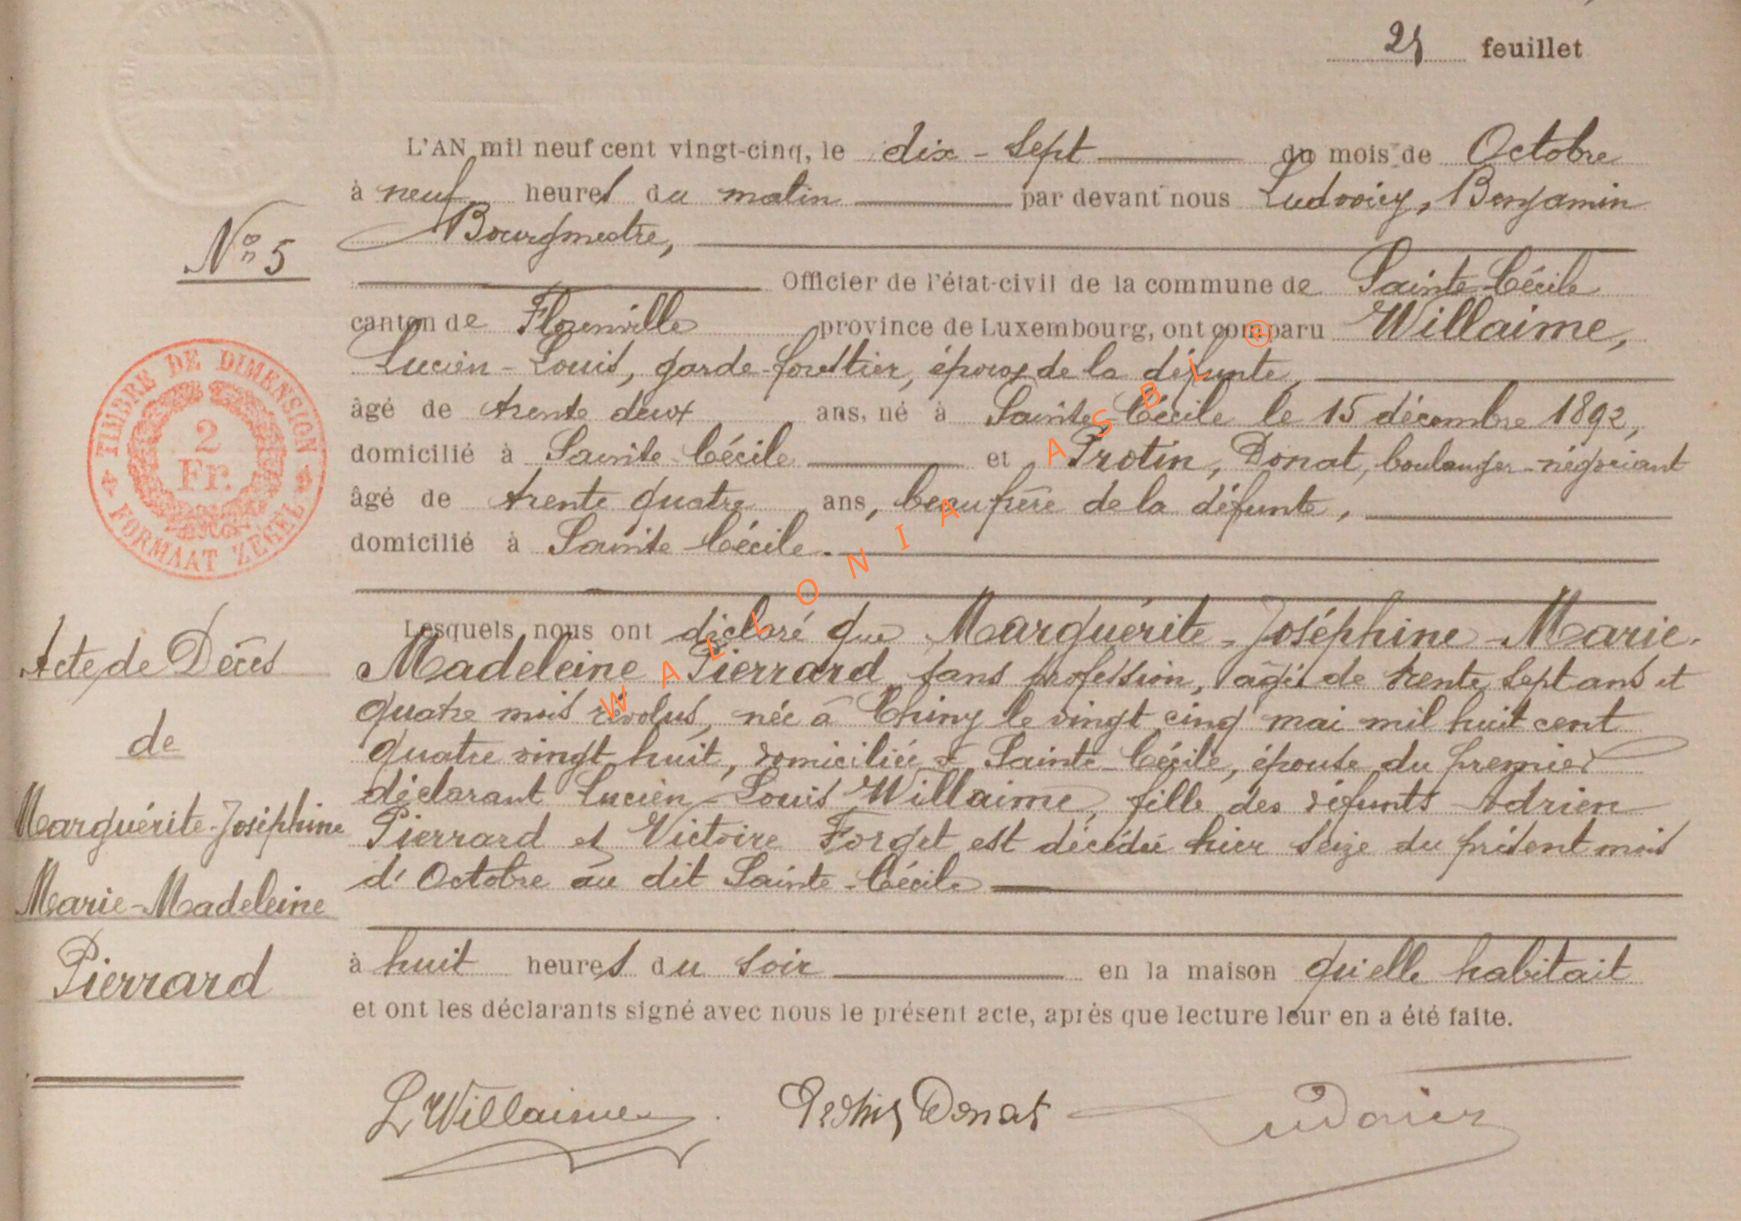 25 feuillet
L'AN mil neuf cent vingt-cinq, le dix-sept du mois de Octobre
à neuf heures du matin par devant nous Ludovicy, Benjamin
Bourgmestre,
N° 5
Officier de l'état-civil de la commune de Sainte-Cécile
canton de Florenville province de Luxembourg, ont comparu Willaime,
Lucien-Louis, garde-forestier, époux de la défunte,
âgé de trente deux ans, né à Sainte-Cécile le 15 décembre 1892,
domicilié à Sainte-Cécile et Protin, Donat, boulanger-négociant
âgé de trente quatre ans, beau frère de la défunte,
domicilié à Sainte-Cécile.
TIMBRE DE DIMENSION
2
Fr.
FORMAAT ZEGEL
WALLONIA ASBL ©
Lesquels nous ont déclaré que Marguérite-Joséphine-Marie-
Madeleine Pierrard sans profession, âgée de trente sept ans et
quatre mois révolus, née à Chiny le vingt cinq mai mil huit cent
quatre vingt huit, domiciliée à Sainte-Cécile, épouse du premier
déclarant Lucien-Louis Willaime, fille des défunts Adrien
Pierrard et Victoire Forget est décédée hier seize du présent mois
d'Octobre au dit Sainte-Cécile
à huit heures du soir en la maison qu'elle habitait
et ont les déclarants signé avec nous le présent acte, après que lecture leur en a été faite.
Acte de Décès
de
Marguérite-Joséphine
Marie-Madeleine
Pierrard
L Willaime Protin Donat Ludovicy